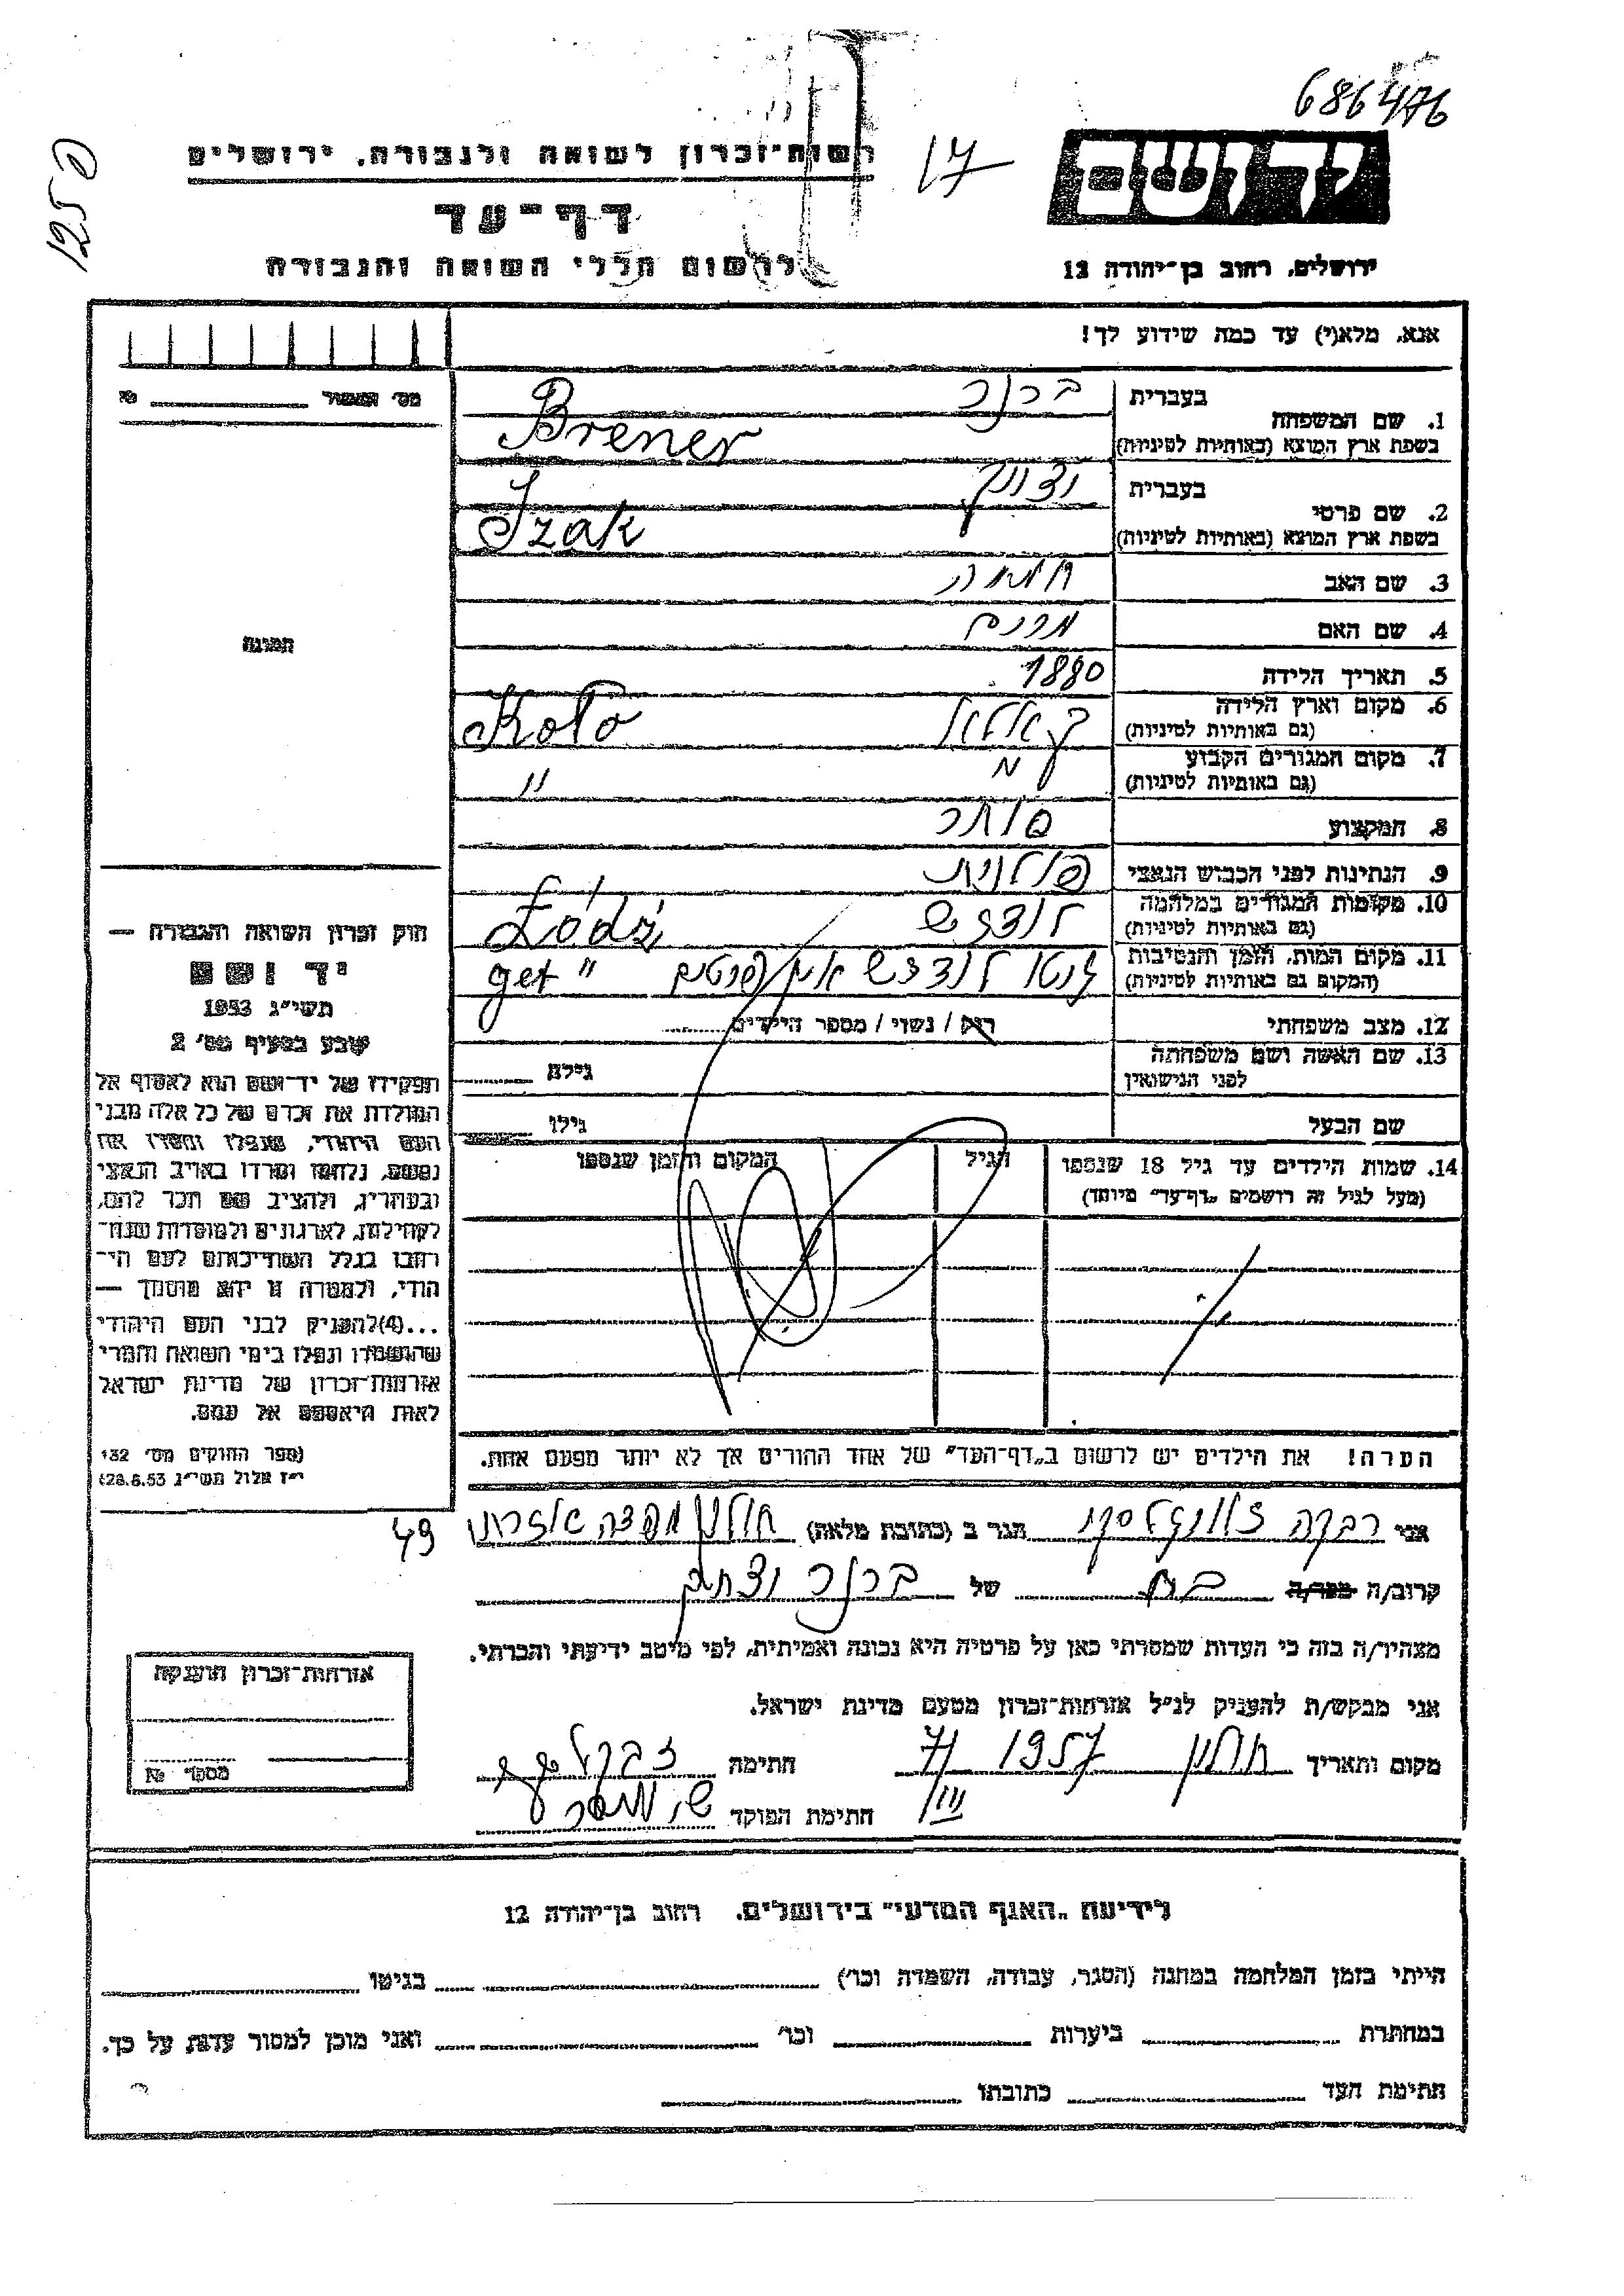 686476
1250
17
רשות-זכרון לשואה ולגבורה, ירושלים
יד ושם
דף-עד
ירושלים, רחוב בן-יהודה 12
לרשום חללי השואה והגבורה
אנא, מלא(י) עד כמה שידוע לך!
מס׳ №
1. שם המשפחה בעברית ברנר
בשפת ארץ המוצא (באותיות לטיניות) Brener
2. שם פרטי בעברית יצחק
בשפת ארץ המוצא (באותיות לטיניות) Izak
3. שם האב
4. שם האם מרים
תמונה
5. תאריך הלידה 1880
6. מקום וארץ הלידה Koło
(גם באותיות לטיניות)
7. מקום המגורים הקבוע "
(גם באותיות לטיניות)
8. המקצוע סוחר
9. הנתינות לפני הכבוש הנאצי פולנית
10. מקומות המגורים במלחמה לודז׳ש Łódź
(גם באותיות לטיניות)
11. מקום המות, הזמן והנסיבות גטו לודזש אין פרטים get "
(המקום גם באותיות לטיניות)
12. מצב משפחתי רוק / נשוי / מספר הילדים
13. שם האשה ושם משפחתה גילה
לפני הנישואין
שם הבעל גילו
14. שמות הילדים עד גיל 18 שנספו הגיל המקום והזמן שנספו
(מעל לגיל זה רושמים „דף-עד" מיוחד)
חוק זכרון השואה והגבורה —
יד ושם
תשי״ג 1953
קובע בסעיף מס׳ 2
תפקידו של יד-ושם הוא לאסוף אל
המולדת את זכרם של כל אלה מבני
העם היהודי, שנפלו ומסרו את
נפשם, נלחמו ומרדו באויב הנאצי
ובעוזריו, ולהציב שם וזכר להם,
לקהילות, לארגונים ולמוסדות שנח-
רבו בגלל השתייכותם לעם הי-
הודי, ולמטרה זו יהא מוסמך —
...(4) להעניק לבני העם היהודי
שהושמדו ונפלו בימי השואה והמרי
אזרחות-זכרון של מדינת ישראל
לאות היאספם אל עמם.
(ספר החוקים מס׳ 132
י״ז אלול תשי״ג 28.8.53)
הערה! את הילדים יש לרשום ב„דף-העד" של אחד ההורים אך לא יותר מפעם אחת.
אני רבקה הגר ב (כתובת מלאה) חולון 49
קרוב/ה מכר/ה בת של ברנר יצחק
מצהיר/ה בזה כי העדות שמסרתי כאן על פרטיה היא נכונה ואמיתית, לפי מיטב ידיעתי והכרתי.
אני מבקש/ת להעניק לנ״ל אזרחות-זכרון מטעם מדינת ישראל.
מקום ותאריך חולון 1957 חתימה
חתימת הפוקד
אזרחות-זכרון הוענקה
מספר №
לידיעת „האגף המדעי" בירושלים. רחוב בן-יהודה 12
הייתי בזמן המלחמה במחנה (הסגר, עבודה, השמדה וכו׳) בגיטו
במחתרת ביערות וכו׳ ואני מוכן למסור עדות על כך.
חתימת העד כתובתו